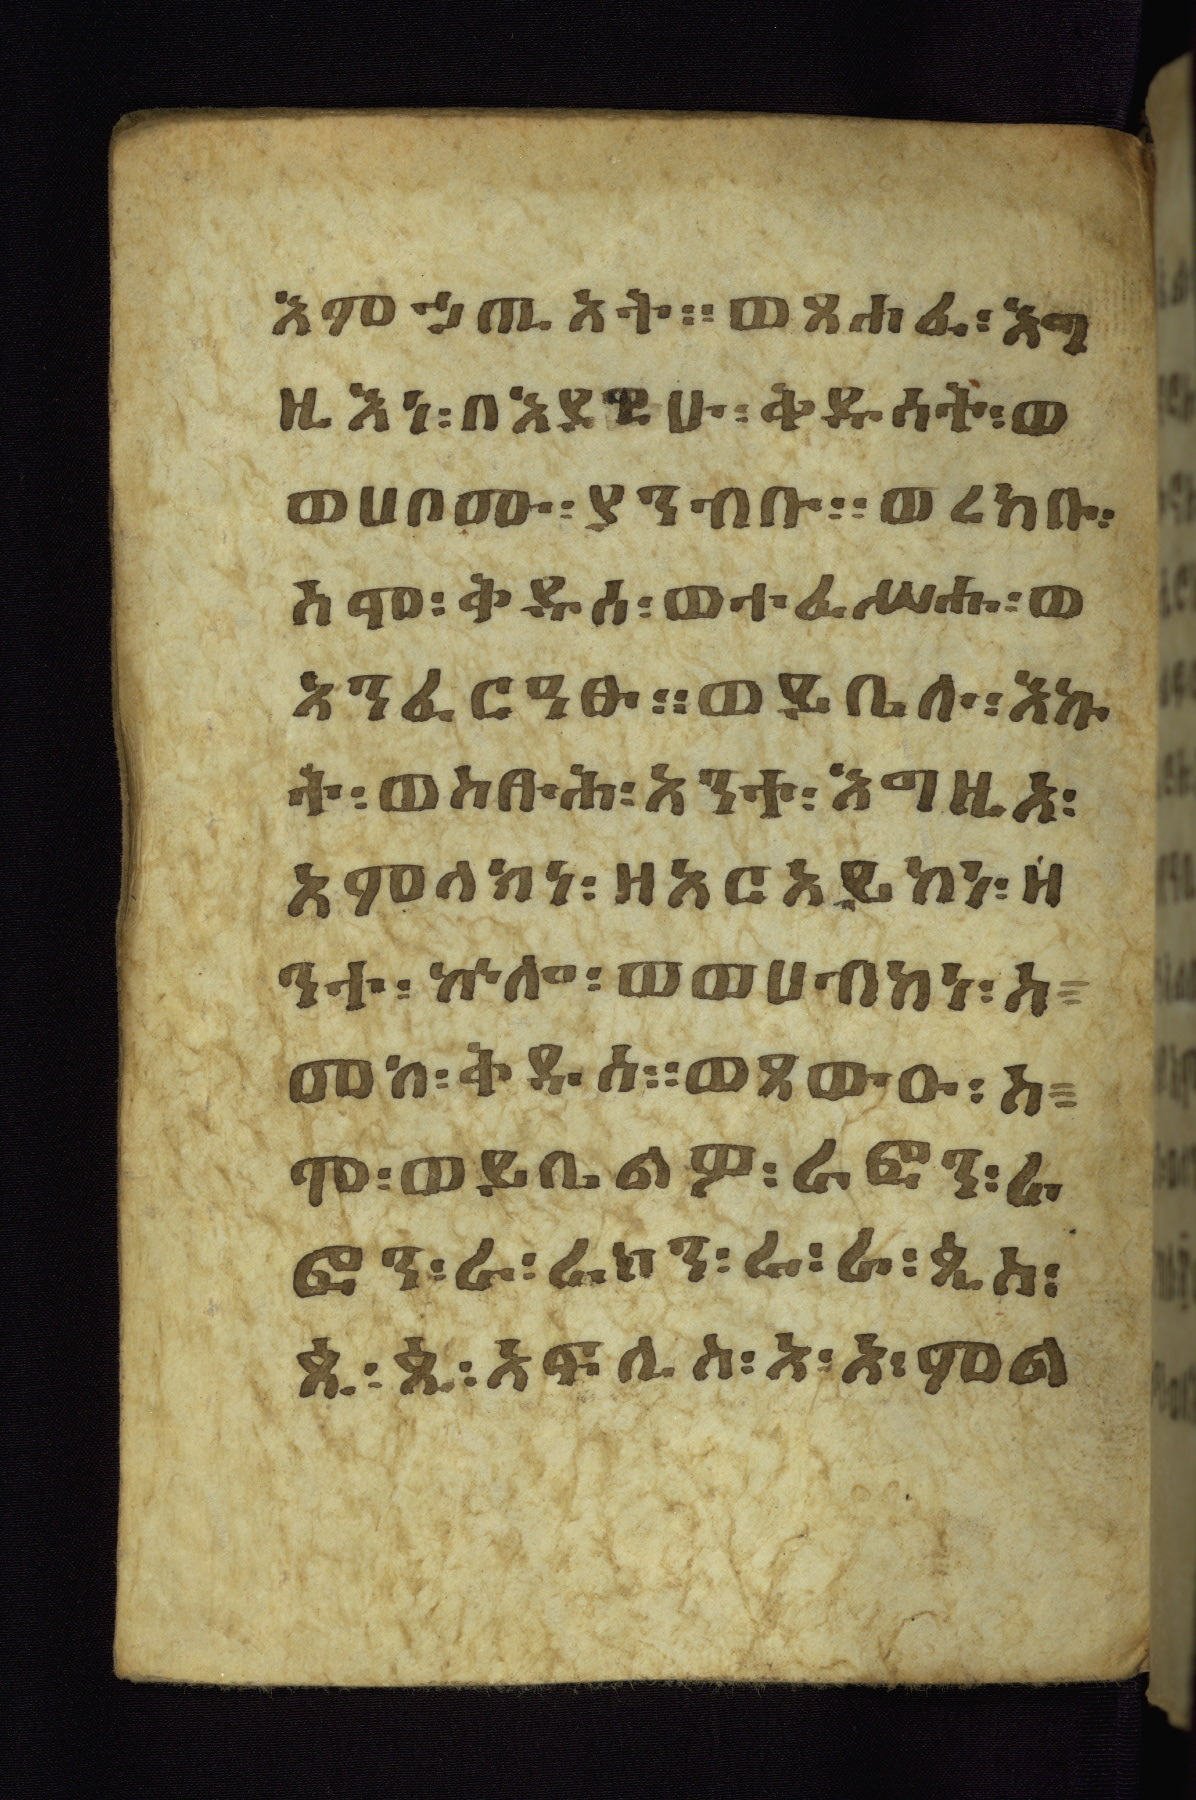 እምኃጢአት፡፡ወጸሐፈ፡እግ
ዚእነ፡በእደዊሁ፡ቅዱሳት፡ወ
ወሀቦሙ፡ያንብቡ፡፡ወረከቡ፡
አሞ፡ቅዱስ፡ወተፈሥሑ፡ወ
አንፈርዓፁ፡፡ወይቤሉ፡እኩ
ት፡ወስቡሕ፡አንተ፡እግዚአ፡
አምላክነ፡ዘአርአይከነ፡ዘ
ንተ፡ኵሎ፡ወወሀብከነ፡አ
መከ፡ቅዱስ፡፡ወጸውዑ፡አ
ሞ፡ወይቤልዎ፡ራፎን፡ራ
ፎን፡ራ፡ራኮን፡ራ፡ራ፡ጲስ፡
ጲ፡ጲ፡አፍሊስ፡አ፡አ፡ምል